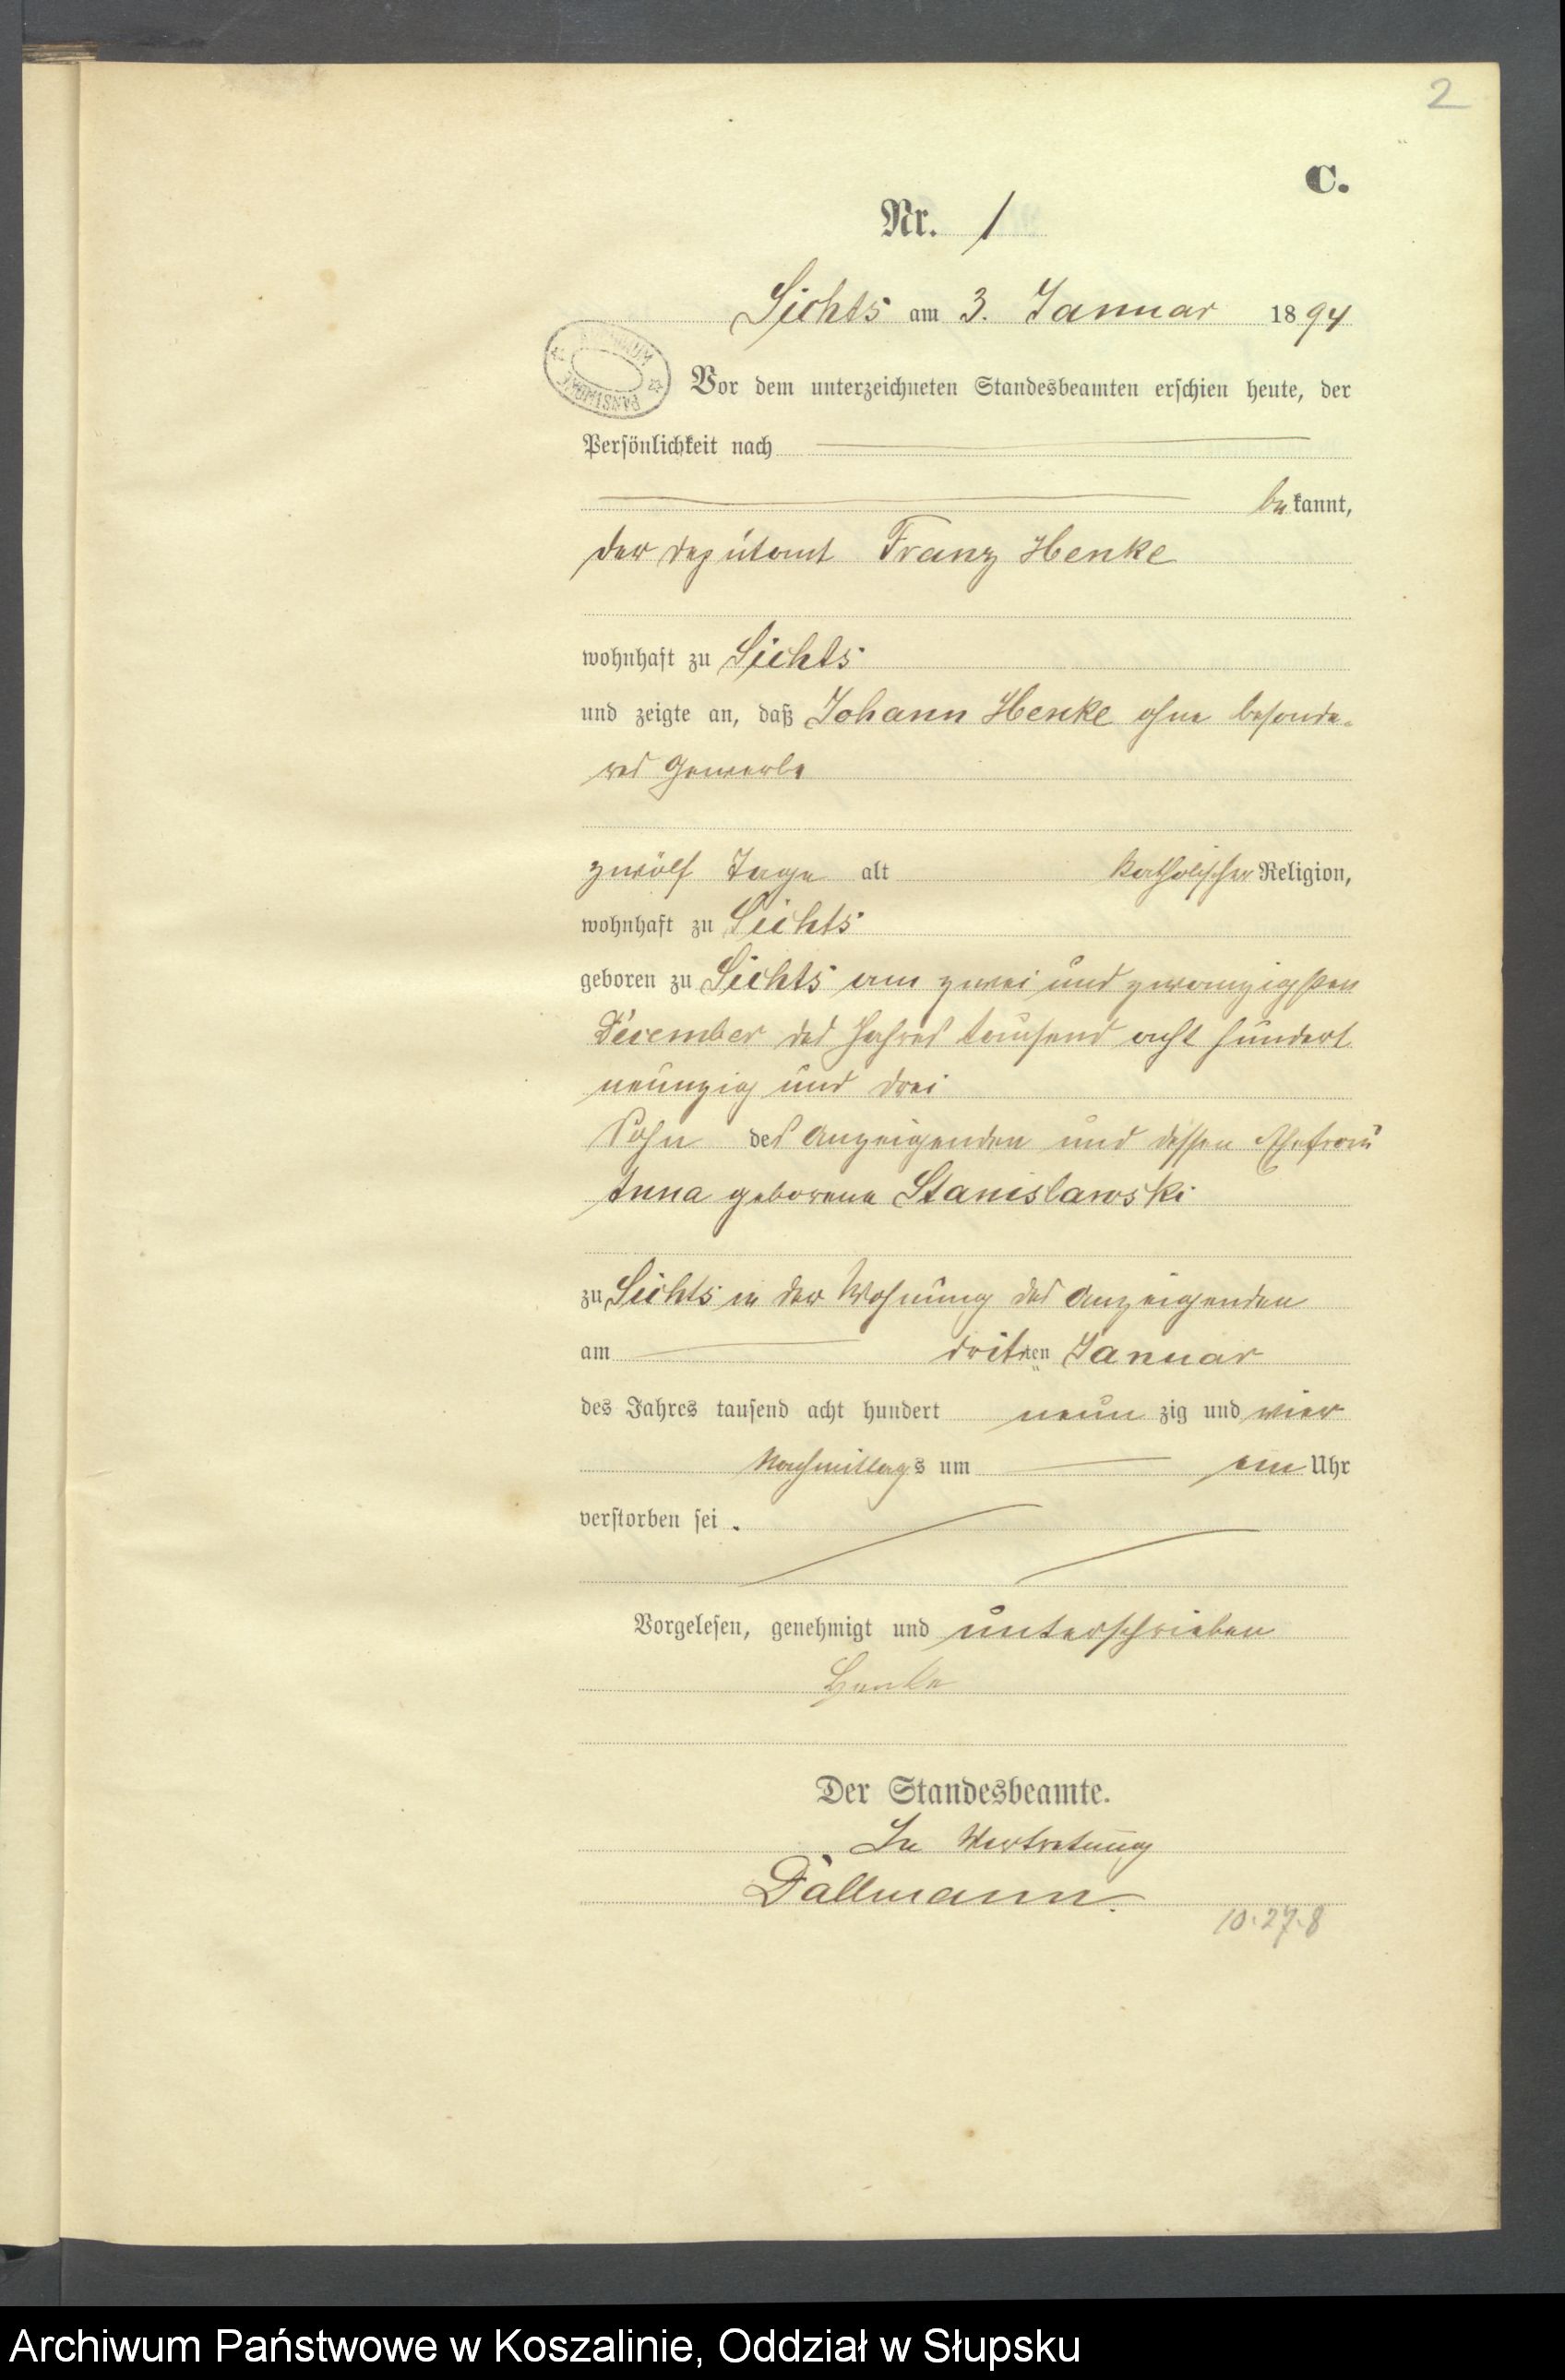 2
C.
Nr. 1
Sichts am 3. Januar 1894
ARCHIWUM PAŃSTWOWE
Vor dem unterzeichneten Standesbeamten erschien heute, der
Persönlichkeit nach
bekannt,
der Deputant Franz Henke
wohnhaft zu Sichts
und zeigte an, daß Johann Henke ohne besonde-
res Gewerbe
zwölf Tage alt katholischer Religion,
wohnhaft zu Sichts
geboren zu Sichts am zwei und zwanzigsten
December des Jahres tausend acht hundert
neunzig und drei
Sohn des Anzeigenden und dessen Ehefrau
Anna geborene Stanislawski
zu Sichts in der Wohnung des Anzeigenden
am dritten Januar
des Jahres tausend acht hundert neun zig und vier
Nachmittags um ein Uhr
verstorben sei.
Vorgelesen, genehmigt und unterschrieben
Henke
Der Standesbeamte.
In Vertretung
Dallmann.
10.27.8
Archiwum Państwowe w Koszalinie, Oddział w Słupsku